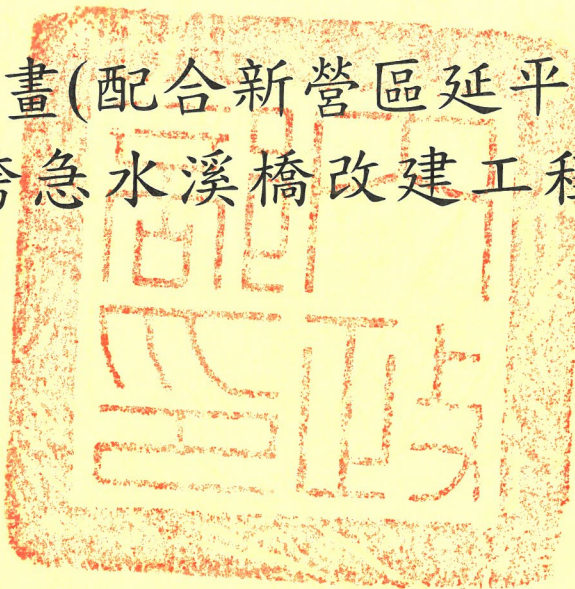 畫(配合新營區延平
急水溪橋改建工程
內政
部印